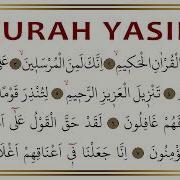 URAH YASI
لْقُرْآنِ الْحَكِيمِ ۝ إِنَّكَ لَمِنَ الْمُرْسَلِينَ ۝ عَلَى
۝ تَنْزِيلَ الْعَزِيزِ الرَّحِيمِ ۝ لِتُنْذِرَ قَوْمًا
فَهُمْ غَافِلُونَ ۝ لَقَدْ حَقَّ الْقَوْلُ عَلَى
ؤْمِنُونَ ۝ إِنَّا جَعَلْنَا فِي أَعْنَاقِهِمْ أَغْلَا